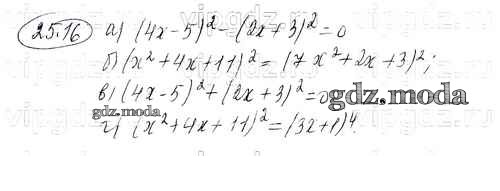 25.16 а) (4x-5)² - (2x+3)² = 0
б) (x²+4x+11)² = (7x²+2x+3)²;
в) (4x-5)² + (2x+3)² = 0
gdz.moda
gdz.moda
г) (x²+4x+11)² = (3x+1)⁴.